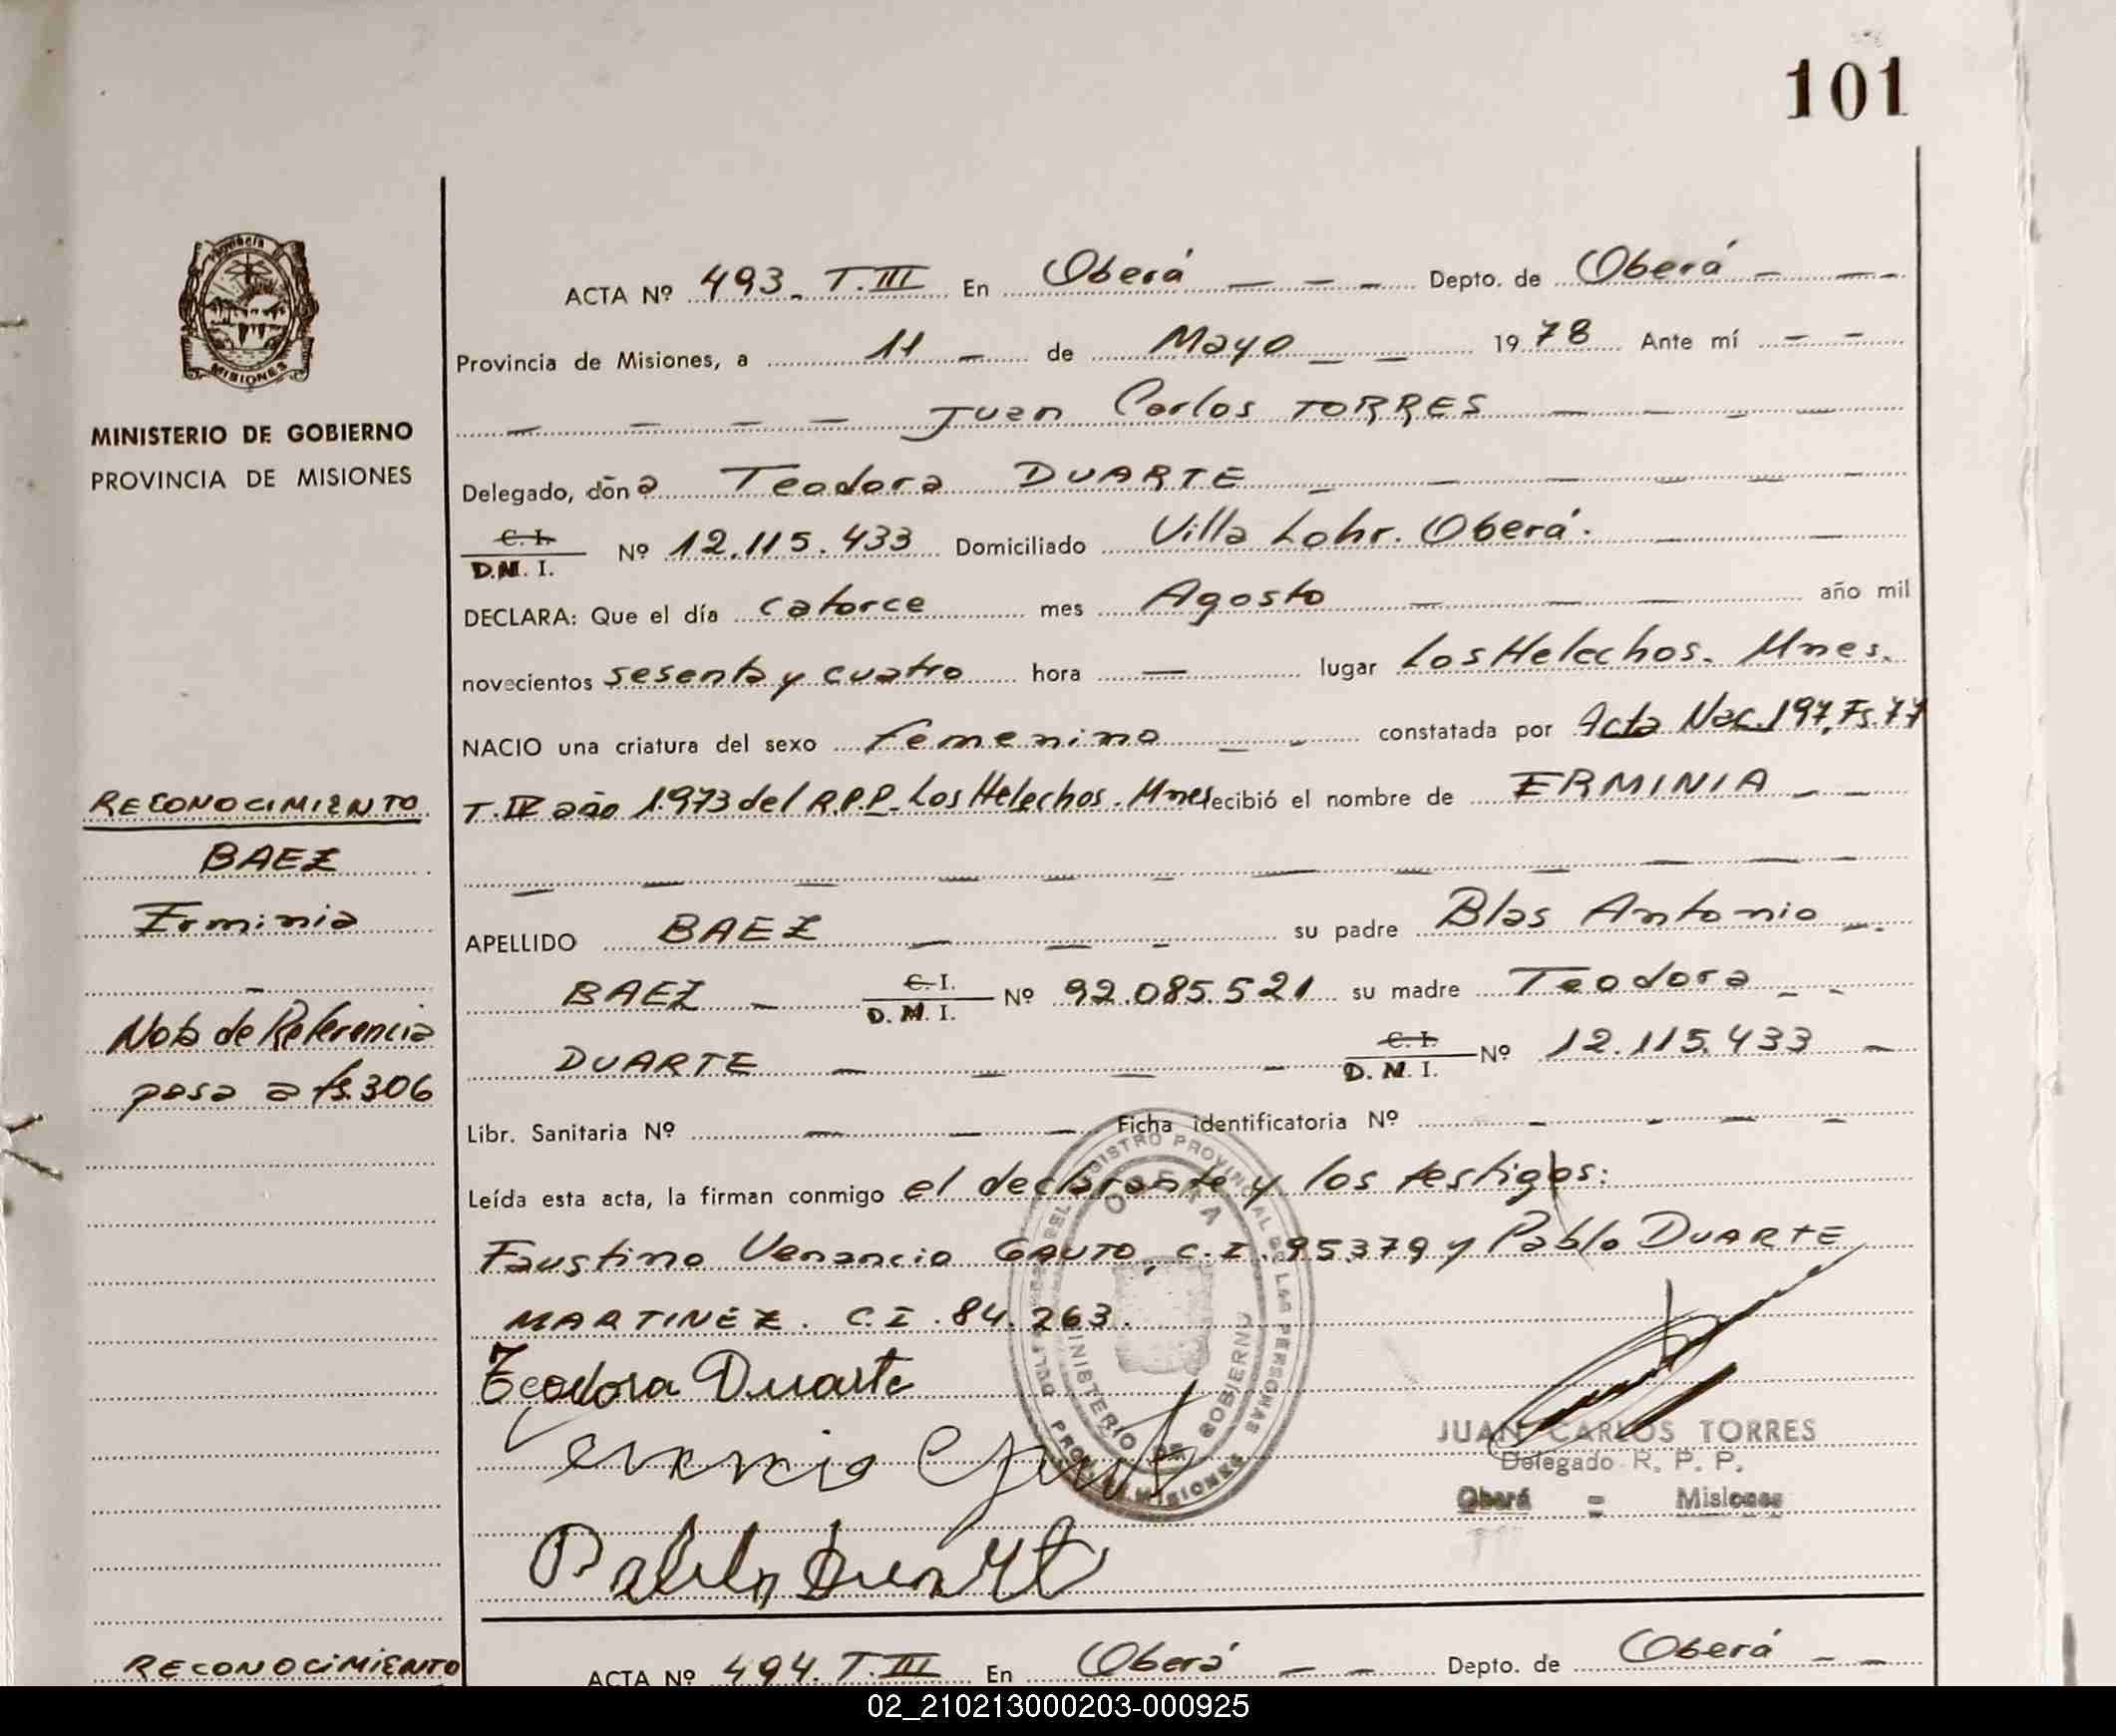 101
MISIONES
MINISTERIO DE GOBIERNO
PROVINCIA DE MISIONES
RECONOCIMIENTO
BAEZ
Erminia
Nota de Referencia
pasa a fs. 306
ACTA Nº 493. T. III En Oberá Depto. de Oberá
Provincia de Misiones, a 11 de Mayo 1978 Ante mí
Juan Carlos TORRES
Delegado, doña Teodora DUARTE
C. I. / D.N. I. Nº 12.115.433 Domiciliado Villa Lohr. Oberá.
DECLARA: Que el día catorce mes Agosto año mil
novecientos sesenta y cuatro hora — lugar Los Helechos. Mnes.
NACIO una criatura del sexo femenino constatada por Acta Nac. 197, Fs. 77
T. IV año 1.973 del R.P.P. Los Helechos. Mnes ecibió el nombre de ERMINIA
APELLIDO BAEZ su padre Blas Antonio
BAEZ C. I. / D. N. I. Nº 92.085.521 su madre Teodora
DUARTE C. I. / D. N. I. Nº 12.115.433
Libr. Sanitaria Nº — Ficha identificatoria Nº —
Leída esta acta, la firman conmigo el declarante y los testigos:
Faustino Venancio GAUTO, C.I. 95.379 y Pablo DUARTE
MARTINEZ. C.I. 84.263.
Teodora Duarte
Venancio Gauto
Pablo Duarte
REGISTRO PROVINCIAL DE LAS PERSONAS
OBERA
MINISTERIO DE GOBIERNO
MISIONES
JUAN CARLOS TORRES
Delegado R. P. P.
Oberá = Misiones
RECONOCIMIENTO
ACTA Nº 494. T. III En Oberá Depto. de Oberá
02_210213000203-000925